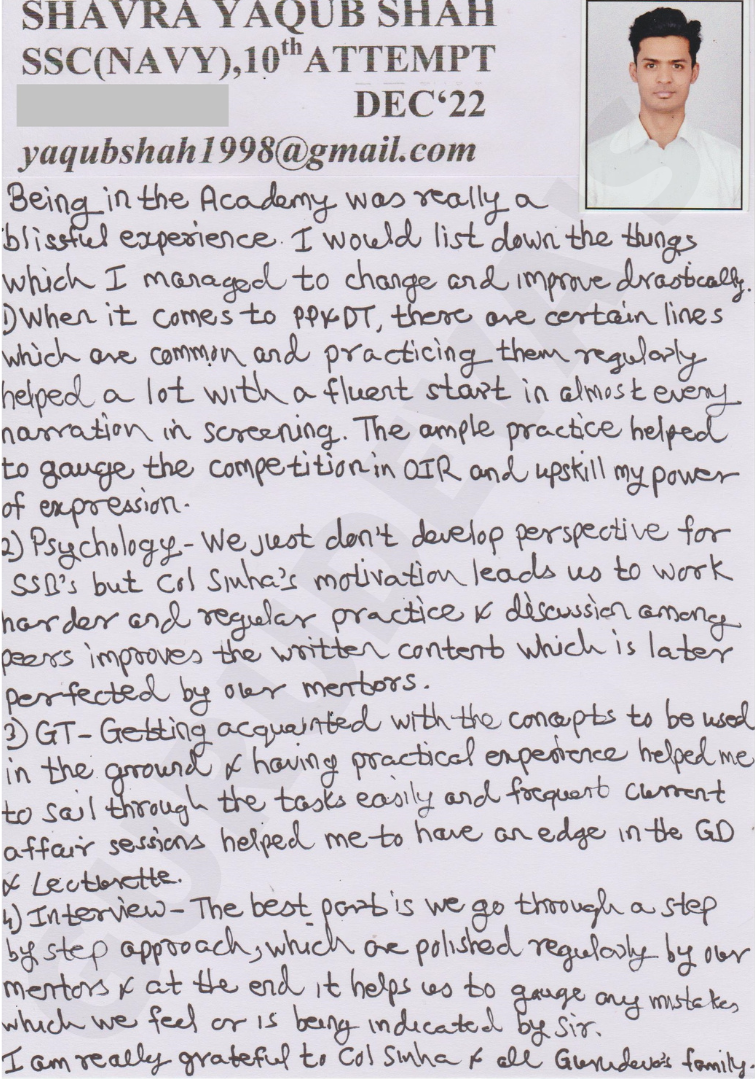 SHAVRA YAQUB SHAH
SSC(NAVY),10th ATTEMPT
DEC‘22
yaqubshah1998@gmail.com
Being in the Academy was really a
blissful experience. I would list down the things
which I managed to change and improve drastically.
1) When it comes to PP&DT, there are certain lines
which are common and practicing them regularly
helped a lot with a fluent start in almost every
narration in screening. The ample practice helped
to gauge the competition in OIR and upskill my power
of expression.
2) Psychology - We just don't develop perspective for
SSB's but Col Sinha's motivation leads us to work
harder and regular practice & discussion among
peers improves the written content which is later
perfected by our mentors.
3) GT - Getting acquainted with the concepts to be used
in the ground & having practical experience helped me
to sail through the tasks easily and frequent current
affair sessions helped me to have an edge in the GD
& Lecturette.
4) Interview - The best part is we go through a step
by step approach, which are polished regularly by our
mentors & at the end it helps us to gauge any mistakes
which we feel or is being indicated by Sir.
I am really grateful to Col Sinha & all Gurudeva's family.
GURUDEVAS